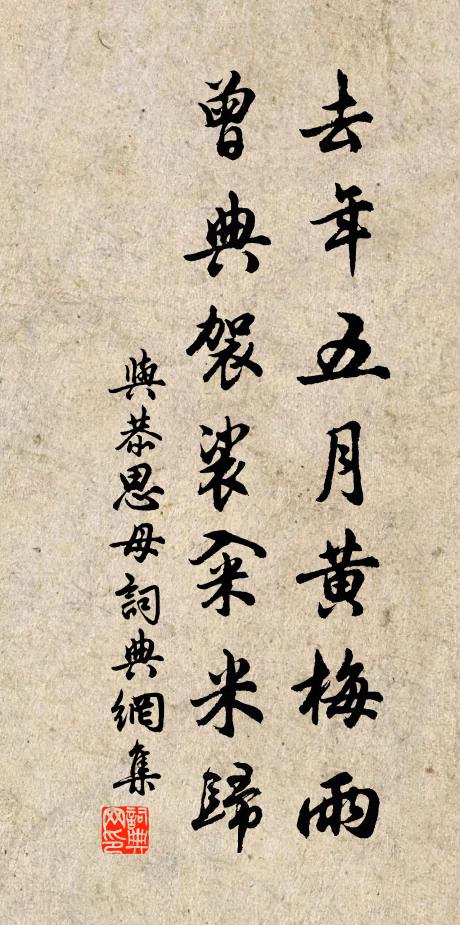 去年五月黃梅雨
曾典袈裟籴米歸
與恭思母詞典網集
詞典网印